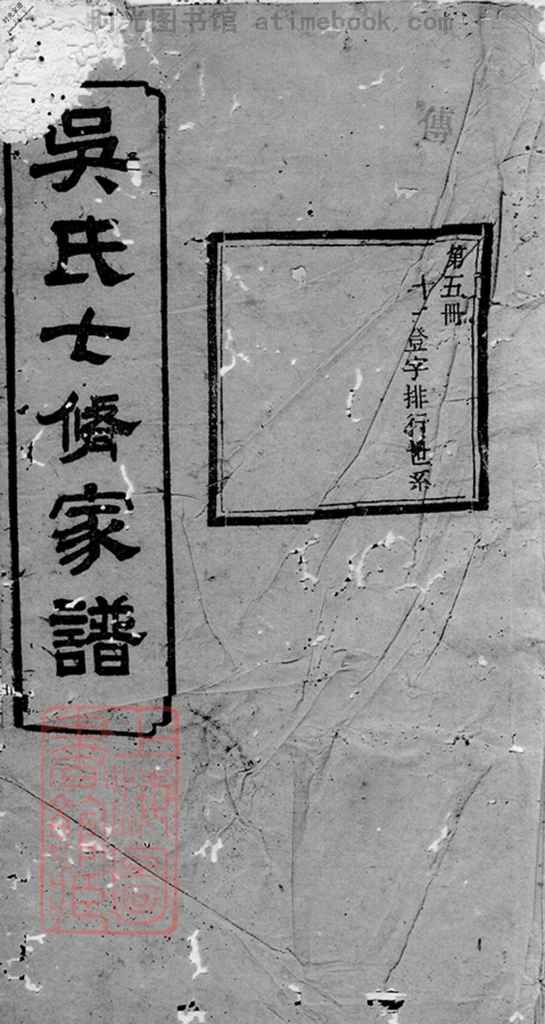 时光图书馆 atimebook.com
傳
第五冊
十一登字排行世系
吳氏七修家譜